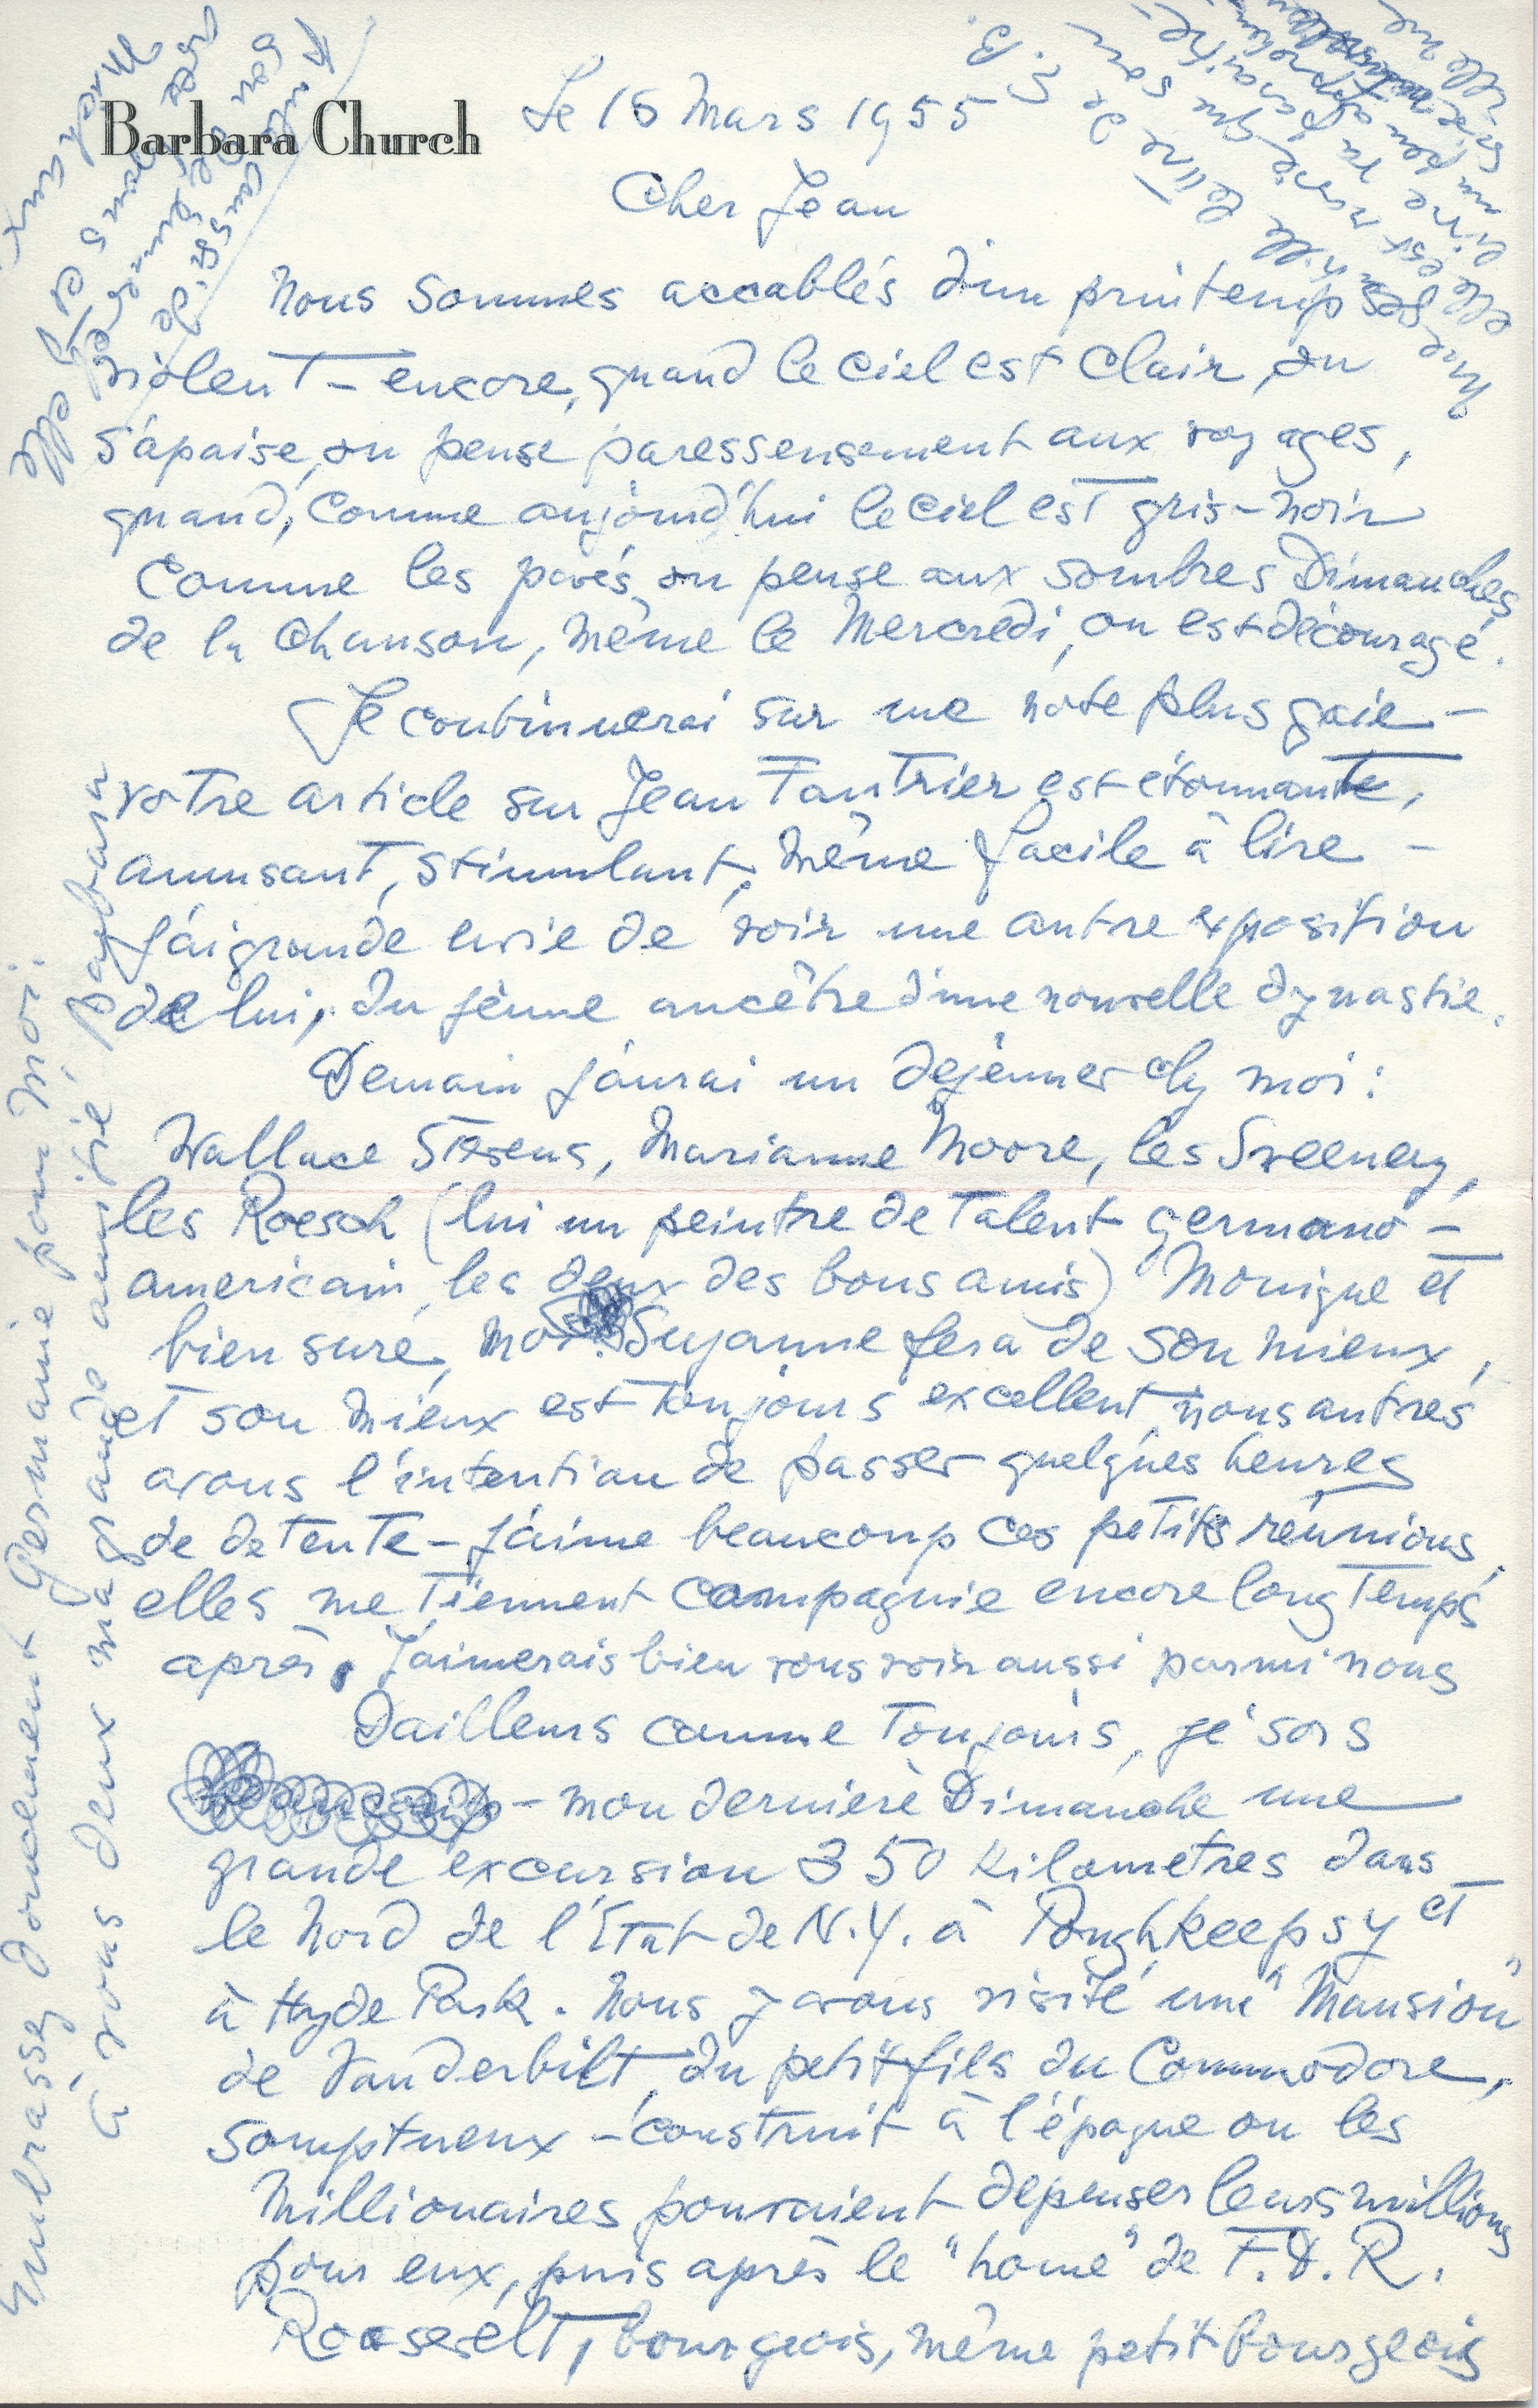 Barbara Church
Le 16 Mars 1955
Cher Jean
Nous sommes accablés d'un printemps
violent – encore, quand le ciel est clair, on
s'apaise, on pense paresseusement aux voyages,
quand, comme aujourd'hui le ciel est gris-noir
comme les pavés on pense aux sombres Dimanches
de la Chanson, même le Mercredi, on est découragé.
Je continuerai sur une note plus gaie –
votre article sur Jean Fautrier est étonnante,
amusant, stimulant, même facile à lire –
j'ai grande envie de voir une autre exposition
de lui, du jeune ancêtre d'une nouvelle dynastie.
Demain j'aurai un dejeuner chz moi :
Wallace Stevens, Marianne Moore, les Sweeney,
les Roesch (lui un peintre de talent germano-
americain, les deux des bons amis) Monique et
bien sure, moi. Suzanne fera de son mieux,
et son mieux est toujours excellent, nous autres
avons l'intention de passer quelques heures
de detente – j'aime beaucoup ces petits réunions,
elles me tiennent compagnie encore long temps
après. J'aimerais bien vous voir aussi parmi nous
Dailleurs comme toujours, je sors
beaucoup – mon derniere Dimanche une
grande excursion 350 Kilometres dans
le Nord de l'Etat de N.Y. à Poughkeepsy et
à Hyde Park. Nous y avons visité une "Mansion"
de Vanderbilt, du petit fils du Commodore,
somptueux – construit à l'époque ou les
Millionaires pouvaient depenser leurs millions
pour eux, puis après le "home" de F.D.R.
Roosevelt, bourgeois, même petit bourgeois
Embrassez doucement Germaine pour moi.
à vous deux ma grande amitié, Barbara